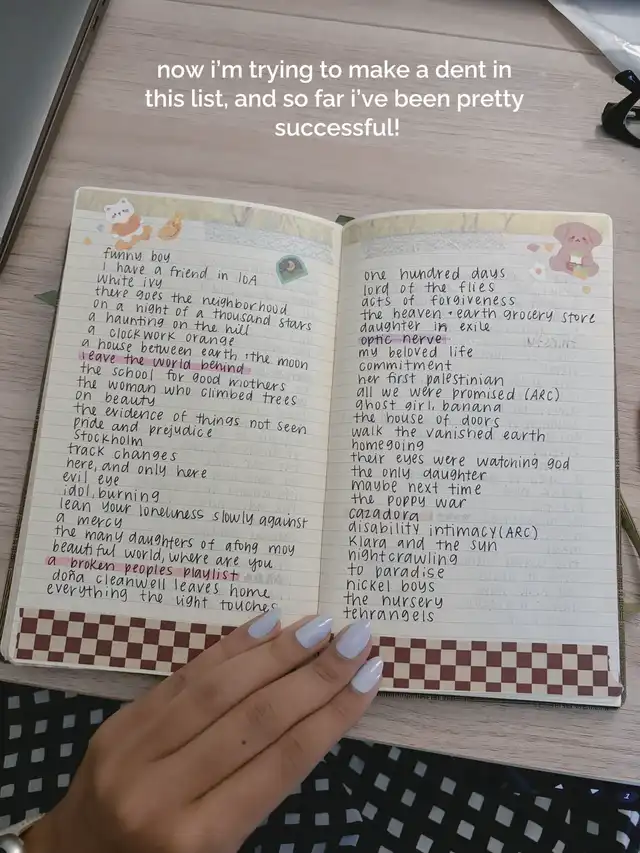 now i'm trying to make a dent in
this list, and so far i've been pretty
successful!
funny boy
i have a friend in ioA
white ivy
there goes the neighborhood
on a night of a thousand stars
a haunting on the hill
a clockwork orange
a house between earth + the moon
leave the world behind
the school for good mothers
the woman who climbed trees
on beauty
the evidence of things not seen
pride and prejudice
stockholm
track changes
here, and only here
evil eye
idol, burning
lean your loneliness slowly against
a mercy
the many daughters of afong moy
beautiful world, where are you
a broken peoples playlist
doña cleanwell leaves home
everything the light touches
one hundred days
lord of the flies
acts of forgiveness
the heaven + earth grocery store
daughter in exile
optic nerve
my beloved life
commitment
her first palestinian
all we were promised (ARC)
ghost girl, banana
the house of doors
walk the vanished earth
homegoing
their eyes were watching god
the only daughter
maybe next time
the poppy war
cazadora
disability intimacy (ARC)
klara and the sun
nightcrawling
to paradise
nickel boys
the nursery
tehrangels